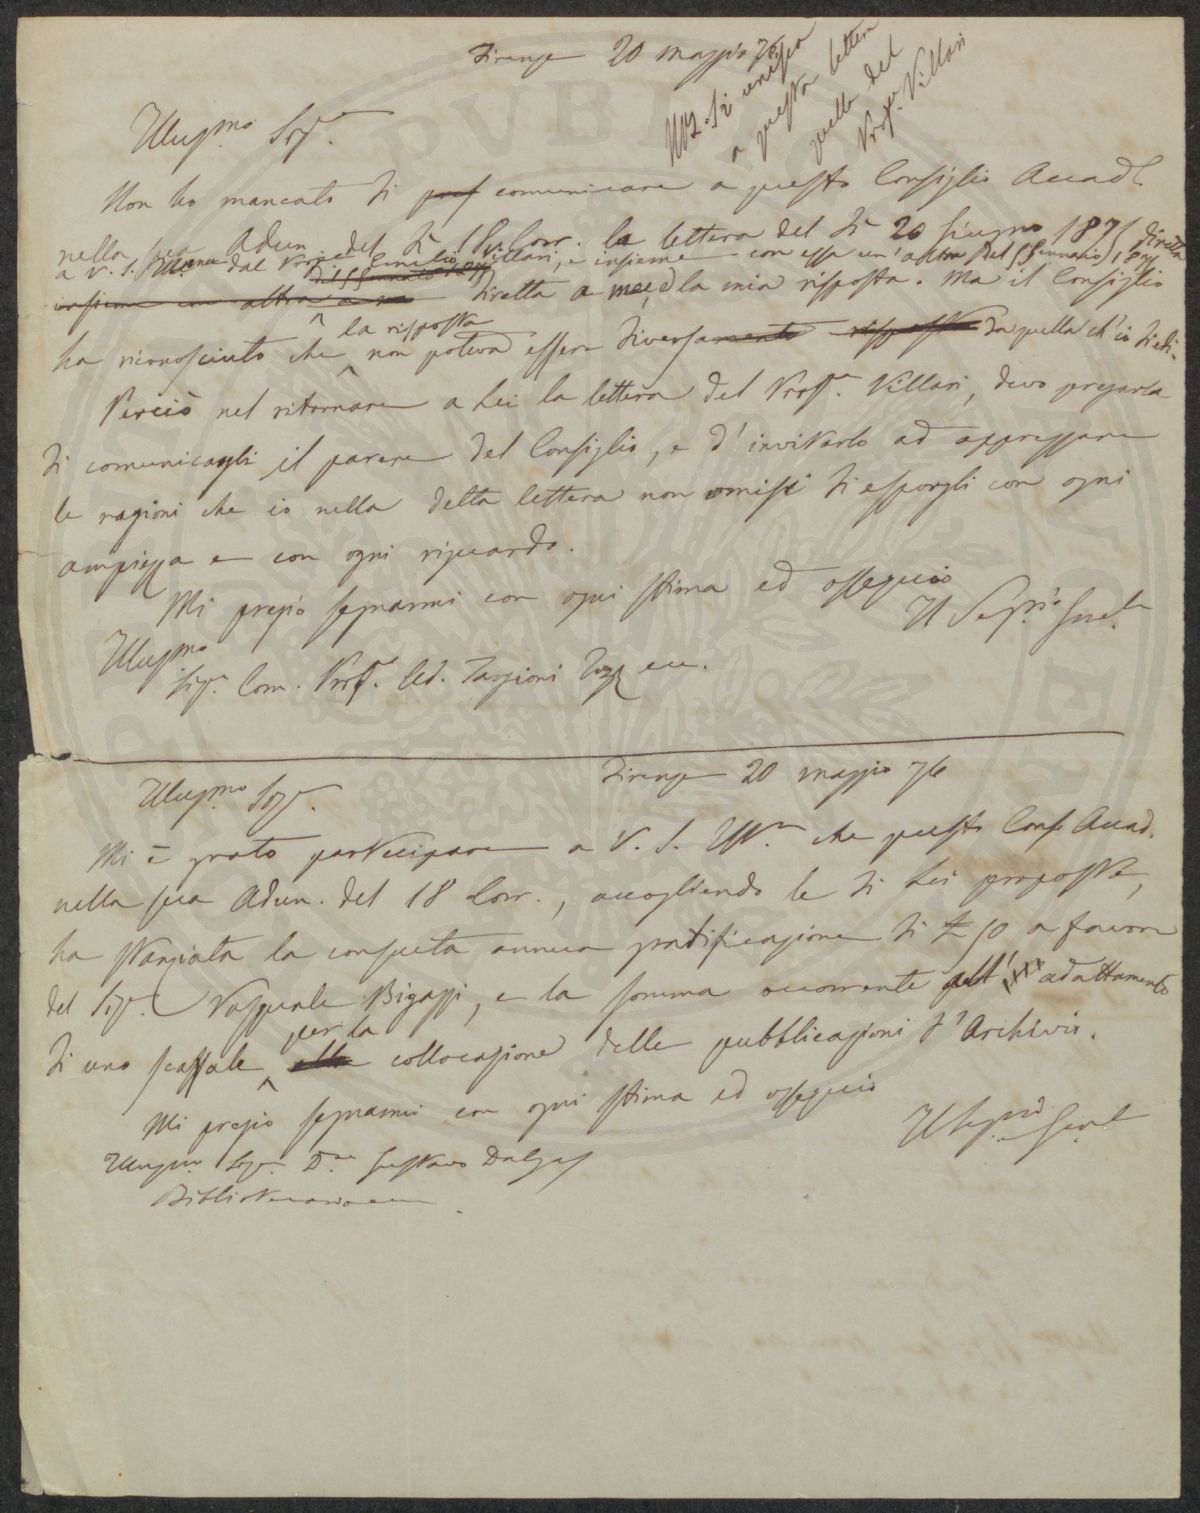 Firenze 20 maggio 76.
NB. Si unisca
a questa lettera
quella del
Prof.re Villari
Illus.mo Sig.re
Non ho mancato di comunicare a questo Consiglio Accad.
nella sua Adun. del dì 18 Corr. la lettera del dì 20 Giugno 1875 diretta
a V. S. dal Prof. Emilio Villari, e insieme con essa un'altra del Gennaio
insieme con altra diretta a me, e la mia risposta. Ma il Consiglio
ha riconosciuto che la risposta non poteva essere diversa da quella ch'io diedi.
Perciò nel ritornare a Lei la lettera del Prof.re Villari, devo pregarla
di comunicargli il parere del Consiglio, e d'invitarlo ad apprezzare
le ragioni che io nella detta lettera non omisi di esporgli con ogni
ampiezza e con ogni riguardo.
Mi pregio segnarmi con ogni stima ed ossequio
Il Seg.rio Gen.le
Illus.mo
Sig.re Com. Prof.re Ad. Targioni Tozz. ecc.
Firenze 20 maggio 76
Illus.mo Sig.re
Mi è grato partecipare a V. S. Ill.ma che questo Cons. Accad.
nella sua Adun. del 18 Corr., accogliendo le di Lei proposte,
ha stanziata la consueta annua gratificazione di £ 50 a favore
del Sig.r Pasquale Bigazzi, e la somma occorrente all' adattamento
di uno scaffale per la collocazione delle pubblicazioni d'Archivio.
Mi pregio segnarmi con ogni stima ed ossequio
Il Seg.rio Gen.le
Illus.mo Sig.re D.re Gustavo Dalgas
Bibliotecario ecc.